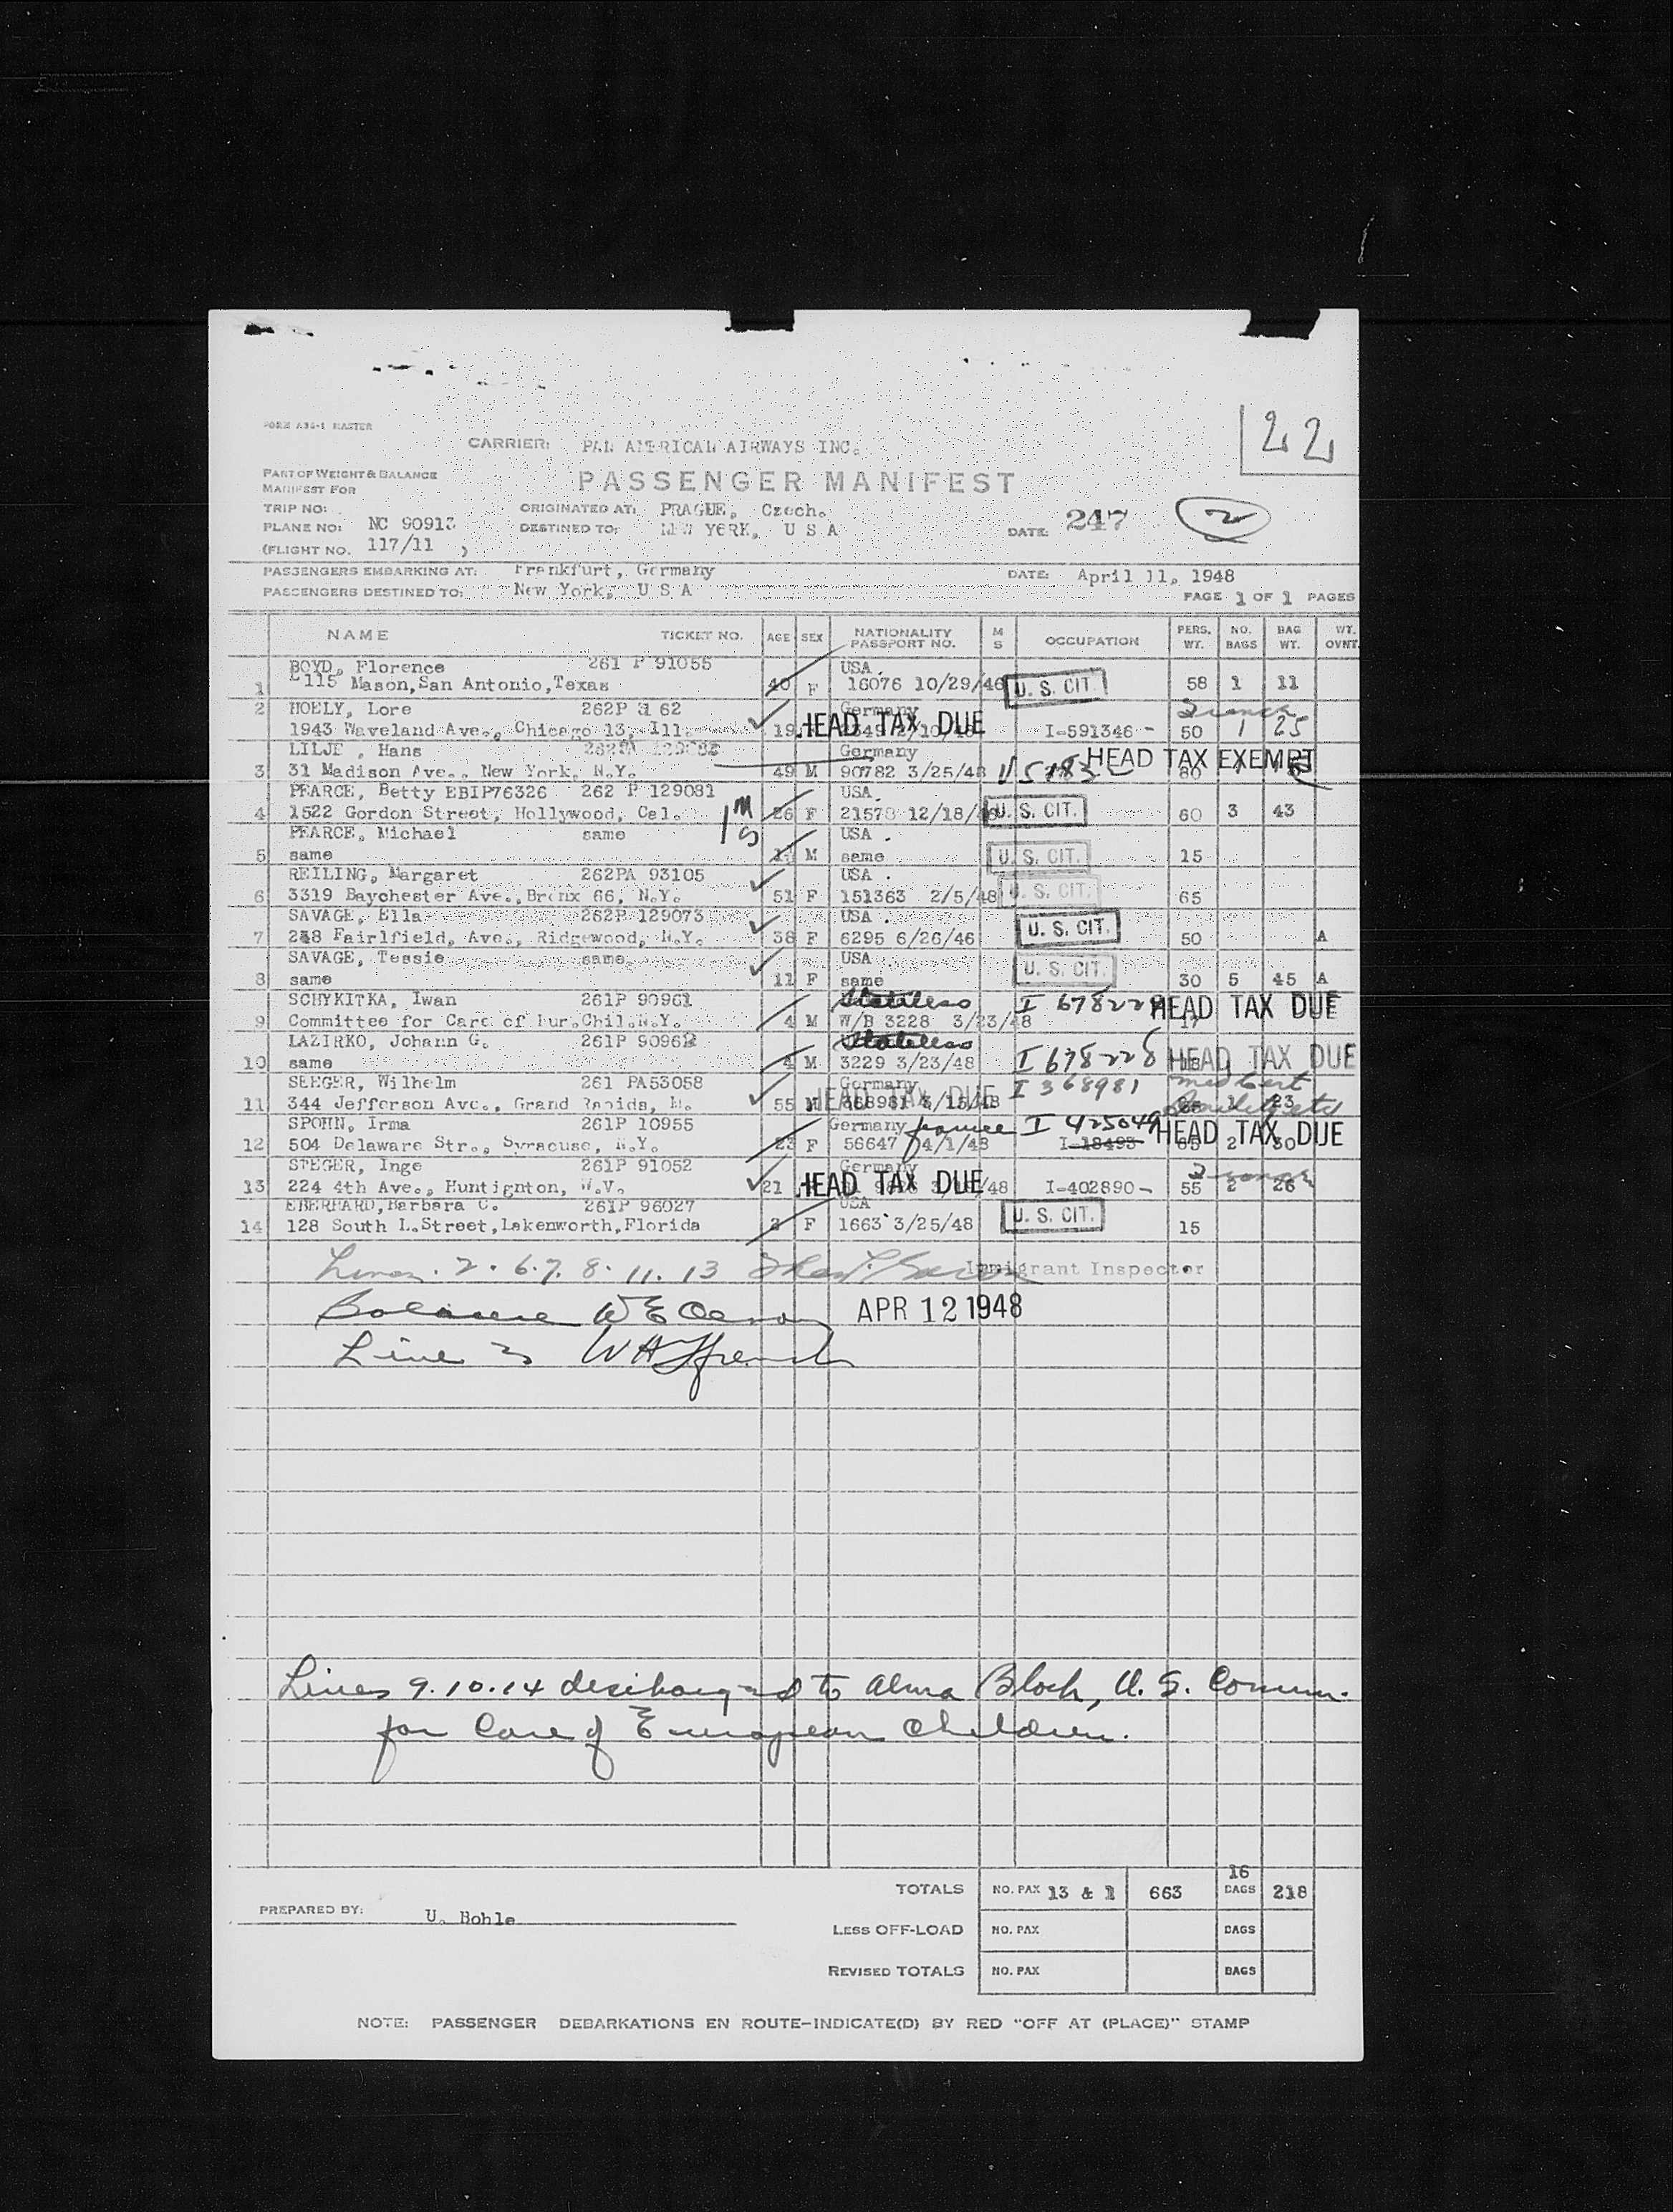 FORM A36-1 MASTER
22
CARRIER: PAN AMERICAN AIRWAYS INC.
PART OF WEIGHT & BALANCE
MANIFEST FOR
PASSENGER MANIFEST
TRIP NO:
ORIGINATED AT: PRAGUE, Czech.
PLANE NO: NC 90913
DESTINED TO: NEW YORK, U S A
DATE: 247
2
(FLIGHT NO. 117/11 )
PASSENGERS EMBARKING AT: Frankfurt, Germany
DATE: April 11, 1948
PASSENGERS DESTINED TO: New York, U S A
PAGE 1 OF 1 PAGES
NAME TICKET NO. AGE SEX NATIONALITY PASSPORT NO. M S OCCUPATION PERS. WT. NO. BAGS BAG WT. WT. OVNT.
BOYD, Florence 261 P 91055 USA.
1 115 Mason, San Antonio, Texas 40 F 16076 10/29/46 U. S. CIT. 58 1 11
2 HOELY, Lore 262P 3162 Germany
1943 Waveland Ave., Chicago 13, Ill. 19 HEAD TAX DUE I-591346 - 50 1 25
LILJE, Hans Germany
3 31 Madison Ave., New York, N.Y. 49 M 90782 3/25/48 HEAD TAX EXEMPT 80
PEARCE, Betty EBIP76326 262 P 129081 USA.
4 1522 Gordon Street, Hollywood, Cal. 26 F 21578 12/18/ U. S. CIT. 60 3 43
PEARCE, Michael same USA.
5 same M same U. S. CIT. 15
REILING, Margaret 262PA 93105 USA.
6 3319 Baychester Ave., Bronx 66, N.Y. 51 F 151363 2/5/48 U. S. CIT. 65
SAVAGE, Ella 262P 129073 USA.
7 248 Fairlfield, Ave., Ridgewood, N.Y. 38 F 6295 6/26/46 U. S. CIT. 50 A
SAVAGE, Tessie same USA
8 same 11 F same U. S. CIT. 30 5 45 A
SCHYKITKA, Iwan 261P 90961 Stateless
9 Committee for Care of Eur.Chil.N.Y. 4 M W/B 3228 3/23/48 HEAD TAX DUE 17
LAZIRKO, Johann G. 261P 90962 Stateless
10 same 4 M 3229 3/23/48 I 678228 HEAD TAX DUE
SEEGER, Wilhelm 261 PA53058 Germany I 368981 med Cert
11 344 Jefferson Ave., Grand Rapids, M. 55 M HEAD TAX DUE 23
SPOHN, Irma 261P 10955 Germany I 425049
12 504 Delaware Str., Syracuse, N.Y. 23 F 56647 4/1/48 I-18493 HEAD TAX DUE 65 2 30
STEGER, Inge 261P 91052 Germany
13 224 4th Ave., Huntignton, W.V. 21 HEAD TAX DUE /48 I-402890 - 55 2 26
EBERHARD, Barbara C. 261P 96027 USA
14 128 South L.Street, Lakenworth, Florida 2 F 1663 3/25/48 U. S. CIT. 15
Lines. 2. 6. 7. 8. 11. 13 Immigrant Inspector
Balance APR 12 1948
Line 3 W A French
Lines 9. 10. 14 discharged to Alma Bloch, U. S. Comm.
for Care of European Children.
TOTALS NO. PAX 13 & 1 663 16 BAGS 218
PREPARED BY: U. Bohle
LESS OFF-LOAD NO. PAX BAGS
REVISED TOTALS NO. PAX BAGS
NOTE: PASSENGER DEBARKATIONS EN ROUTE-INDICATE(D) BY RED "OFF AT (PLACE)" STAMP